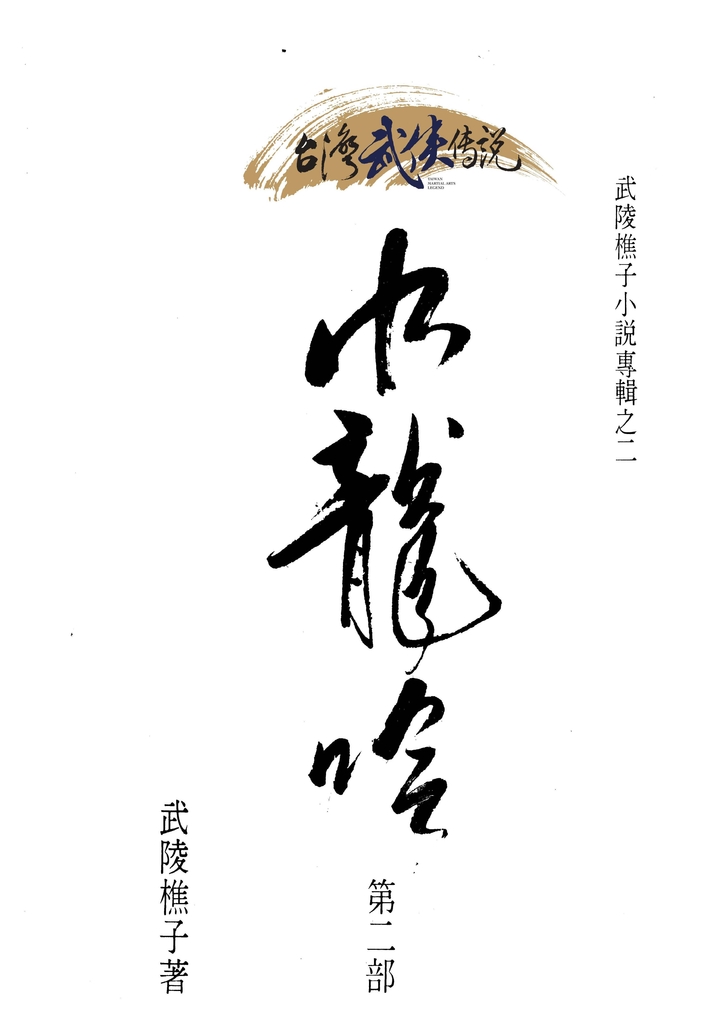 台灣武俠传說
TAIWAN
MARTIAL ARTS
LEGEND
武陵樵子小説專輯之二
水龍吟
第二部
武陵樵子著